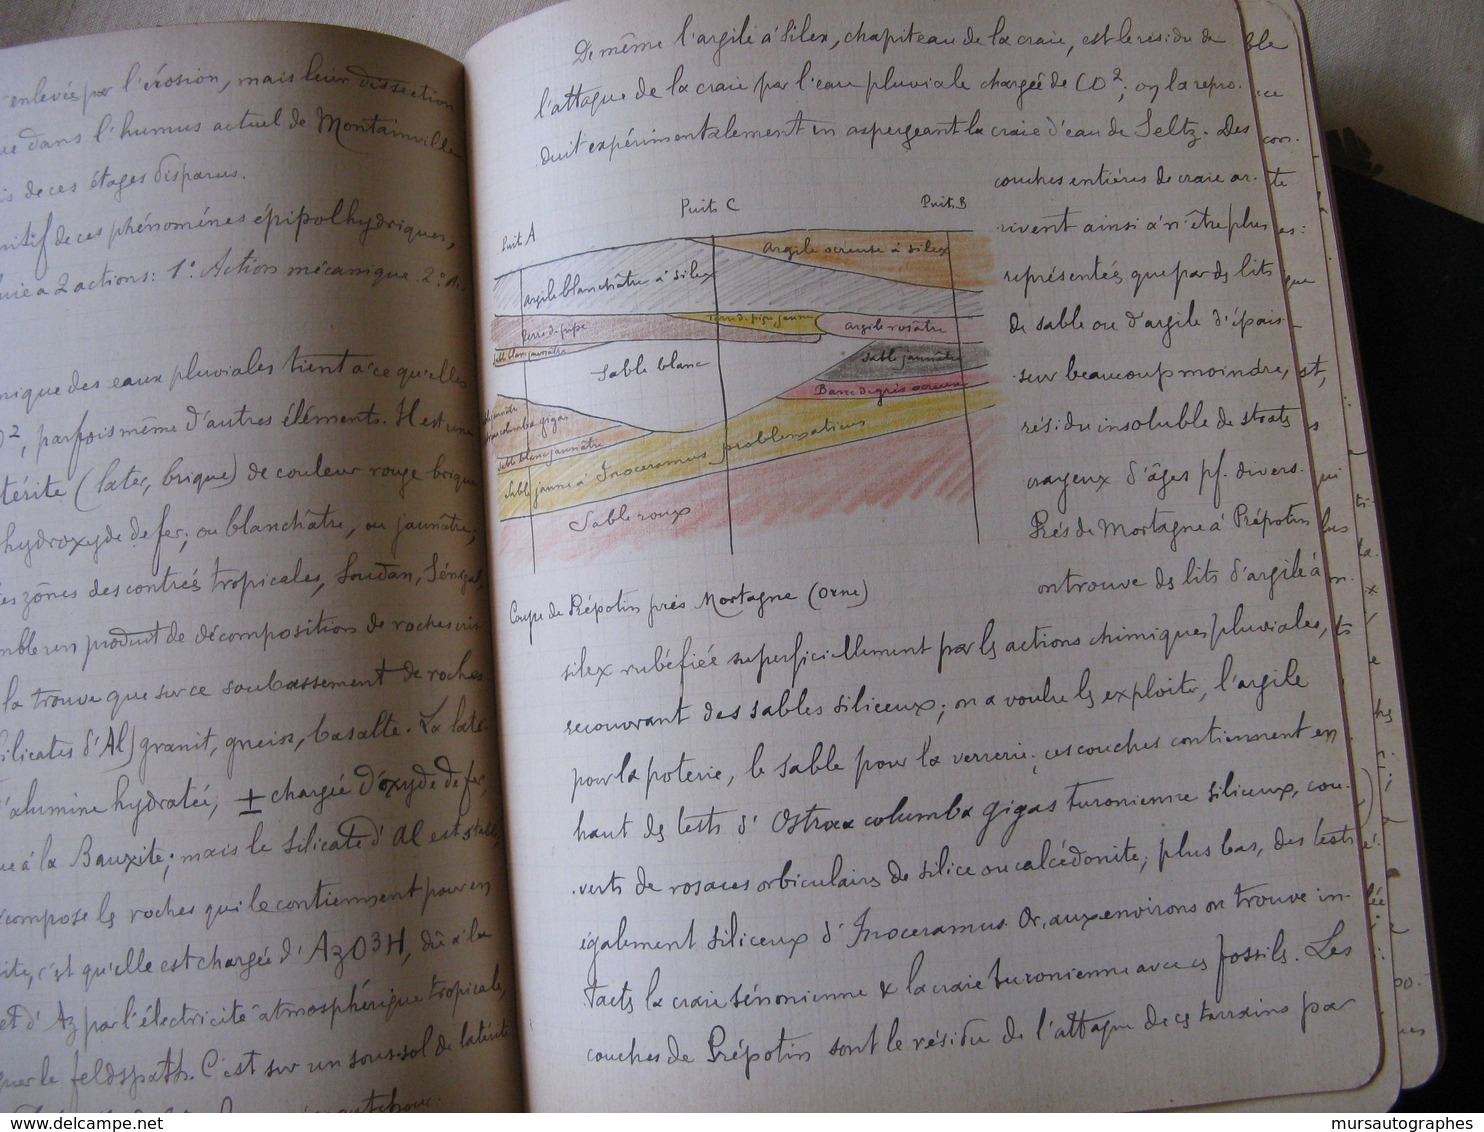 enlevées par l'érosion, mais leur dissection
dans l'humus actuel de Montainville
de ces étages disparus.
de ces phénomènes épipolhydriques,
a 2 actions: 1° Action mécanique. 2°
des eaux pluviales tient à ce qu'elles
parfois même d'autres éléments. Il est une
(later, brique) de couleur rouge brique
hydroxyde de fer; ou blanchâtre, ou jaunâtre;
zônes des contrées tropicales, Soudan, Sénégal,
un produit de décomposition de roches
la trouve que sur ce soubassement de roches
silicates d'Al) granit, gneiss, basalte. La
alumine hydratée, ± chargée d'oxyde de fer,
à la Bauxite; mais le silicate d'Al est stable,
les roches qui le contiennent pour en
c'est qu'elle est chargée d'AzO3H, dû à la
et d'Az par l'électricité atmosphérique tropicale,
le feldspath. C'est sur un sous-sol de latérite
De même l'argile à silex, chapiteau de la craie, est le résidu de
l'attaque de la craie par l'eau pluviale chargée de CO2; on la repro-
duit expérimentalement en aspergeant la craie d'eau de Seltz. Des
couches entières de craie ar-
rivent ainsi à n'être plus
représentées que par ds lits
de sable ou d'argile d'épais-
seur beaucoup moindre,
résidu insoluble de strats
crayeux d'âges pf. divers.
Près de Mortagne à Prépotin
on trouve ds lits d'argile à
Puits A
Puits C
Puits B
Argile ocreuse à silex
Argile blanchâtre à silex
Terre de pipe
Terre de pipe jaune
Argile rosâtre
Sable blanc jaunâtre
Sable blanc
Sable jaunâtre
Banc de grès ocreux
columba gigas
Sable blanc jaunâtre
Sable jaune à Inoceramus problematicus
Sable roux
Coupe de Prépotin près Mortagne (Orne)
silex rubéfiée superficiellement par ls actions chimiques pluviales,
recouvrant des sables siliceux; on a voulu ls exploiter, l'argile
pour la poterie, le sable pour la verrerie; ces couches contiennent en
haut ds tests d'Ostrea columba gigas turonienne siliceux, cou-
verts de rosaces orbiculaires de silice ou calcédonite; plus bas, des tests
également siliceux d'Inoceramus. Or, aux environs on trouve in-
tacts la craie sénonienne & la craie turonienne avec cs fossils. Les
couches de Prépotin sont le résidu de l'attaque de cs terrains par
mursautographes